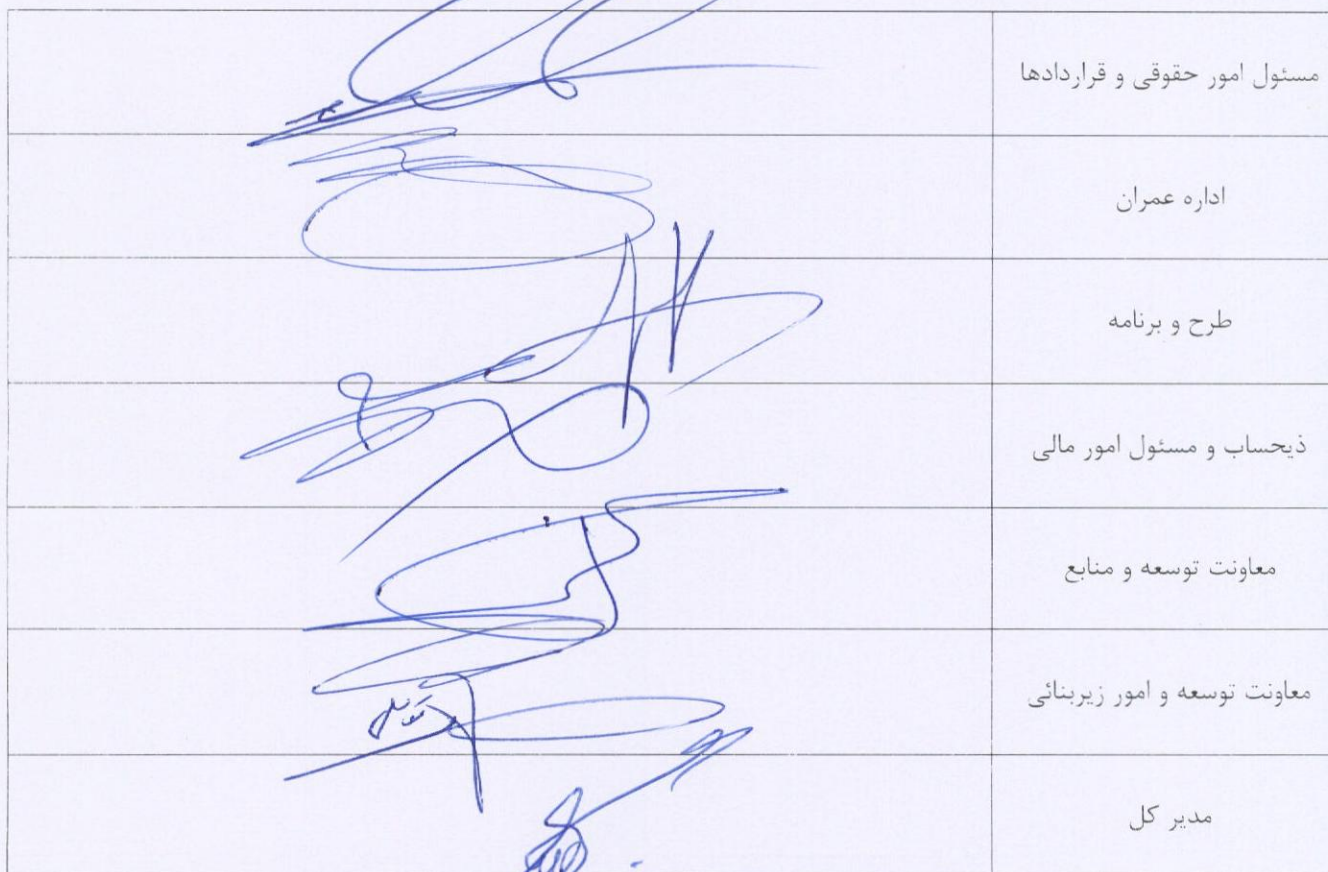 مسئول امور حقوقی و قراردادها
اداره عمران
طرح و برنامه
ذیحساب و مسئول امور مالی
معاونت توسعه و منابع
معاونت توسعه و امور زیربنائی
مدیر کل